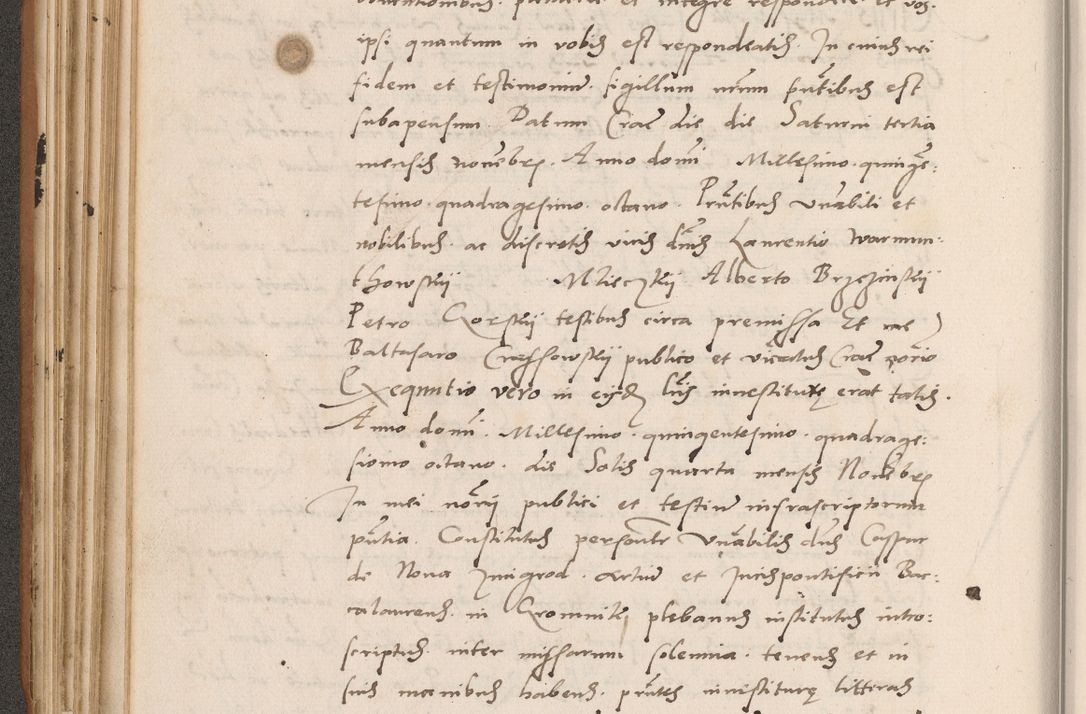 ipsi quantum in vobis est respondeatis. In cuius rei
fidem et testimoniū. sigillum nrum prntibus est
subapensum Datum Crac die die Saturni tertia
mensis novēbrs. Anno domī Millesimo. quingē:
tesimo. quadragesimo. octavo. Prntibus vnrabili et
nobilibus. ac discretis viris dnis Laurentio Warmun:
thowskij Mlieczkij Alberto Brzezinskij
Petro Gorskij testibus circa premissa Et me
Baltasaro Crassowskij publico et Crac
Exequutio vero in eisdē lris investiturę erat talis.
Anno domī. Millesimo. quingentesimo. quadrage:
simo octavo. die Solis quarta mensis Novēbrs
In mei norij publici et testiū infrascriptorum
pntia. Constitutus personlr Vnrabilis dns Caspar
de Nova Artiū et Iurispontificii Bac:
calaureus. in Cromnik plebanus institutus intro:
scriptus. inter missarum solemnia. tenens et in
suis manibus habens. prntes investiturę litteras